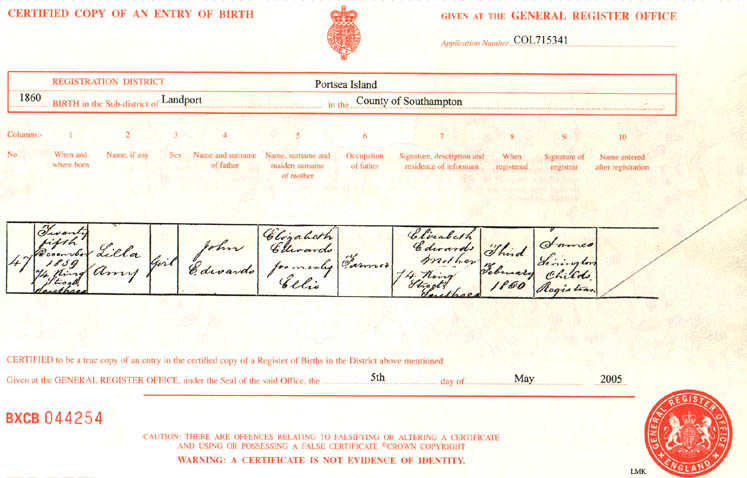 CERTIFIED COPY OF AN ENTRY OF BIRTH
GIVEN AT THE GENERAL REGISTER OFFICE
Application Number COL715341
REGISTRATION DISTRICT Portsea Island
1860 BIRTH in the Sub-district of Landport in the County of Southampton
Columns:- 1 2 3 4 5 6 7 8 9 10
No When and where born Name, if any Sex Name and surname of father Name, surname and maiden surname of mother Occupation of father Signature, description and residence of informant When registered Signature of registrar Name entered after registration
47
Twenty
fifth
December
1859
74 King
Street
Southsea
Lilla
Amy
Girl
John
Edwards
Elizabeth
Edwards
formerly
Ellis
Farmer
Elizabeth
Edwards
Mother
74 King
Street
Southsea
Third
February
1860
James
Childs
Registrar
CERTIFIED to be a true copy of an entry in the certified copy of a Register of Births in the District above mentioned.
Given at the GENERAL REGISTER OFFICE, under the Seal of the said Office, the 5th day of May 2005
BXCB 044254
CAUTION: THERE ARE OFFENCES RELATING TO FALSIFYING OR ALTERING A CERTIFICATE
AND USING OR POSSESSING A FALSE CERTIFICATE ©CROWN COPYRIGHT
WARNING: A CERTIFICATE IS NOT EVIDENCE OF IDENTITY.
GENERAL REGISTER OFFICE
ENGLAND
LMK